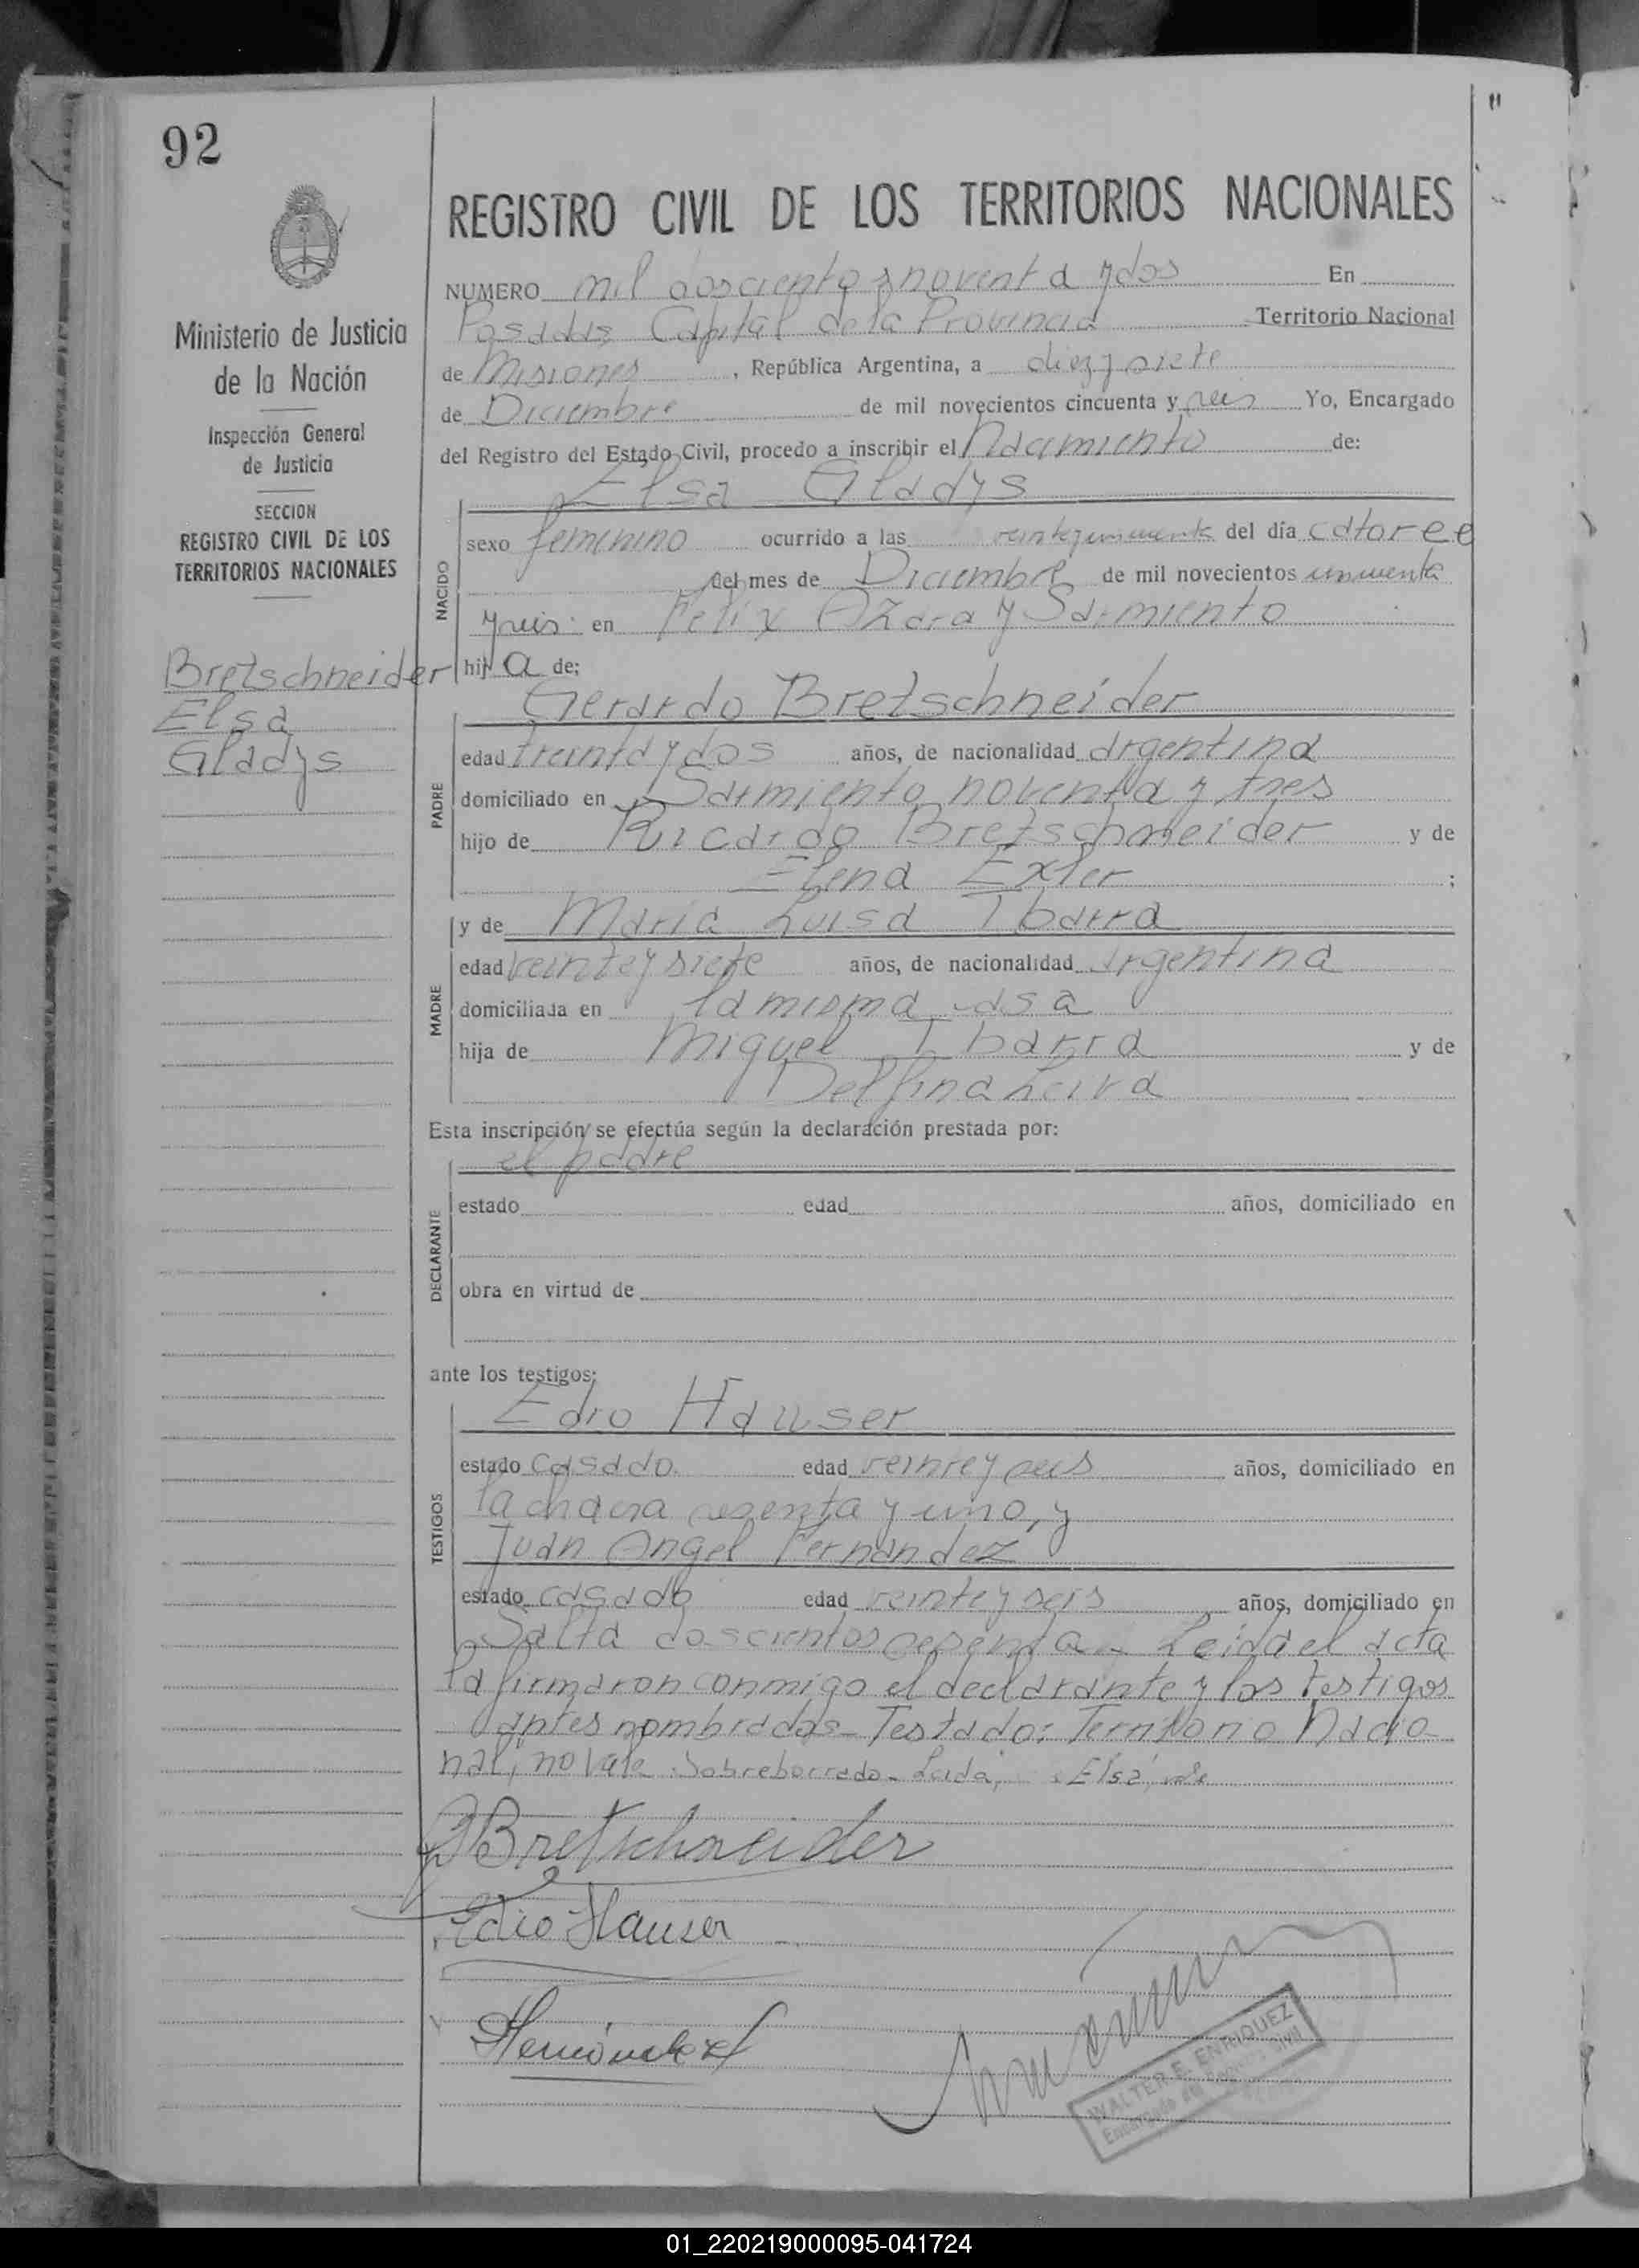 92
REGISTRO CIVIL DE LOS TERRITORIOS NACIONALES
Ministerio de Justicia
de la Nación
Inspección General
de Justicia
SECCION
REGISTRO CIVIL DE LOS
TERRITORIOS NACIONALES
Bretschneider
Elsa
Gladys
NUMERO mil doscientos noventa y dos En
Posadas Capital de la Provincia Territorio Nacional
de Misiones, República Argentina, a diez y siete
de Diciembre de mil novecientos cincuenta y seis Yo, Encargado
del Registro del Estado Civil, procedo a inscribir el Nacimiento de:
Elsa Gladys
NACIDO
sexo femenino ocurrido a las del día catorce
del mes de Diciembre de mil novecientos cincuenta
y seis en Felix Azara y Sarmiento
hija de:
Gerardo Bretschneider
PADRE
edad treinta y dos años, de nacionalidad argentina
domiciliado en Sarmiento noventa y tres
hijo de Ricardo Bretschneider y de
Elena Exler ;
y de Maria Luisa Ibarra
MADRE
edad veinte y siete años, de nacionalidad argentina
domiciliada en la misma casa
hija de Miguel Ibarra y de
Delfina Leiva
Esta inscripción se efectúa según la declaración prestada por:
el padre
DECLARANTE
estado edad años, domiciliado en
obra en virtud de
ante los testigos:
Edio Hauser
TESTIGOS
estado casado. edad veinte y seis años, domiciliado en
la chacra sesenta y uno, y
Juan Angel Fernandez
estado casado edad veinte y seis años, domiciliado en
Salta doscientos sesenta - Leida el acta
la firmaron conmigo el declarante y los testigos
antes nombrados - Testado: Territorio Nacio-
nal, no vale. Sobreborrado - Leida, Elsa, vale
Bretschneider
Edio Hauser
Fernández
WALTER E. ENRIQUEZ
Encargado del Registro Civil
01_220219000095-041724